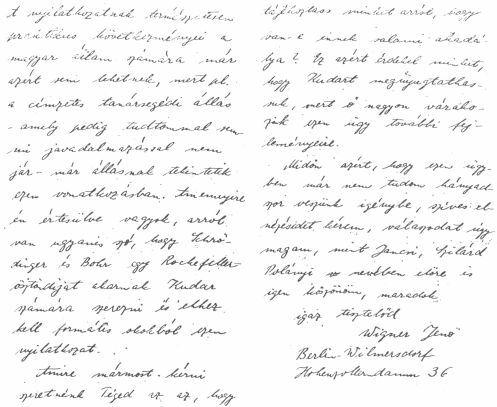 t nyilatkozatnak természetesen
praktikus következményei a
magyar állam számára már
azért sem lehetnek, mert pl.
a címzetes tanársegédi állás
- amely pedig tudtommal sem-
mi javadalmazással nem
jár - már állásnak tekintetik
ezen vonatkozásban. Amennyire
én értesülve vagyok, arról
van ugyanis szó, hogy Schrö-
dinger és Bohr egy Rockefeller-
ösztöndíjat akarnak Kudar
számára szerezni és ehhez
kell formális okokból ezen
nyilatkozat.
Amire mármost kérni
szeretnénk Téged az az, hogy
tájékoztass minket arról, hogy
van-e ennek valami akadá-
lya? Ez azért érdekel minket,
hogy Kudart megnyugtathas-
suk, mert ő nagyon várako-
zik ezen ügy további fej-
leményeire.
Midőn azért, hogy ezen ügy-
ben már nem tudom hányad-
szor veszünk igénybe, szíves el-
nézésedet kérem, válaszodat úgy
magam, mint Jancsi, Szilárd
Polányi nevében előre is
igen köszönöm, maradok
igaz tisztelőd
Wigner Jenő
Berlin-Wilmersdorf
Hohenzollerndamm 36